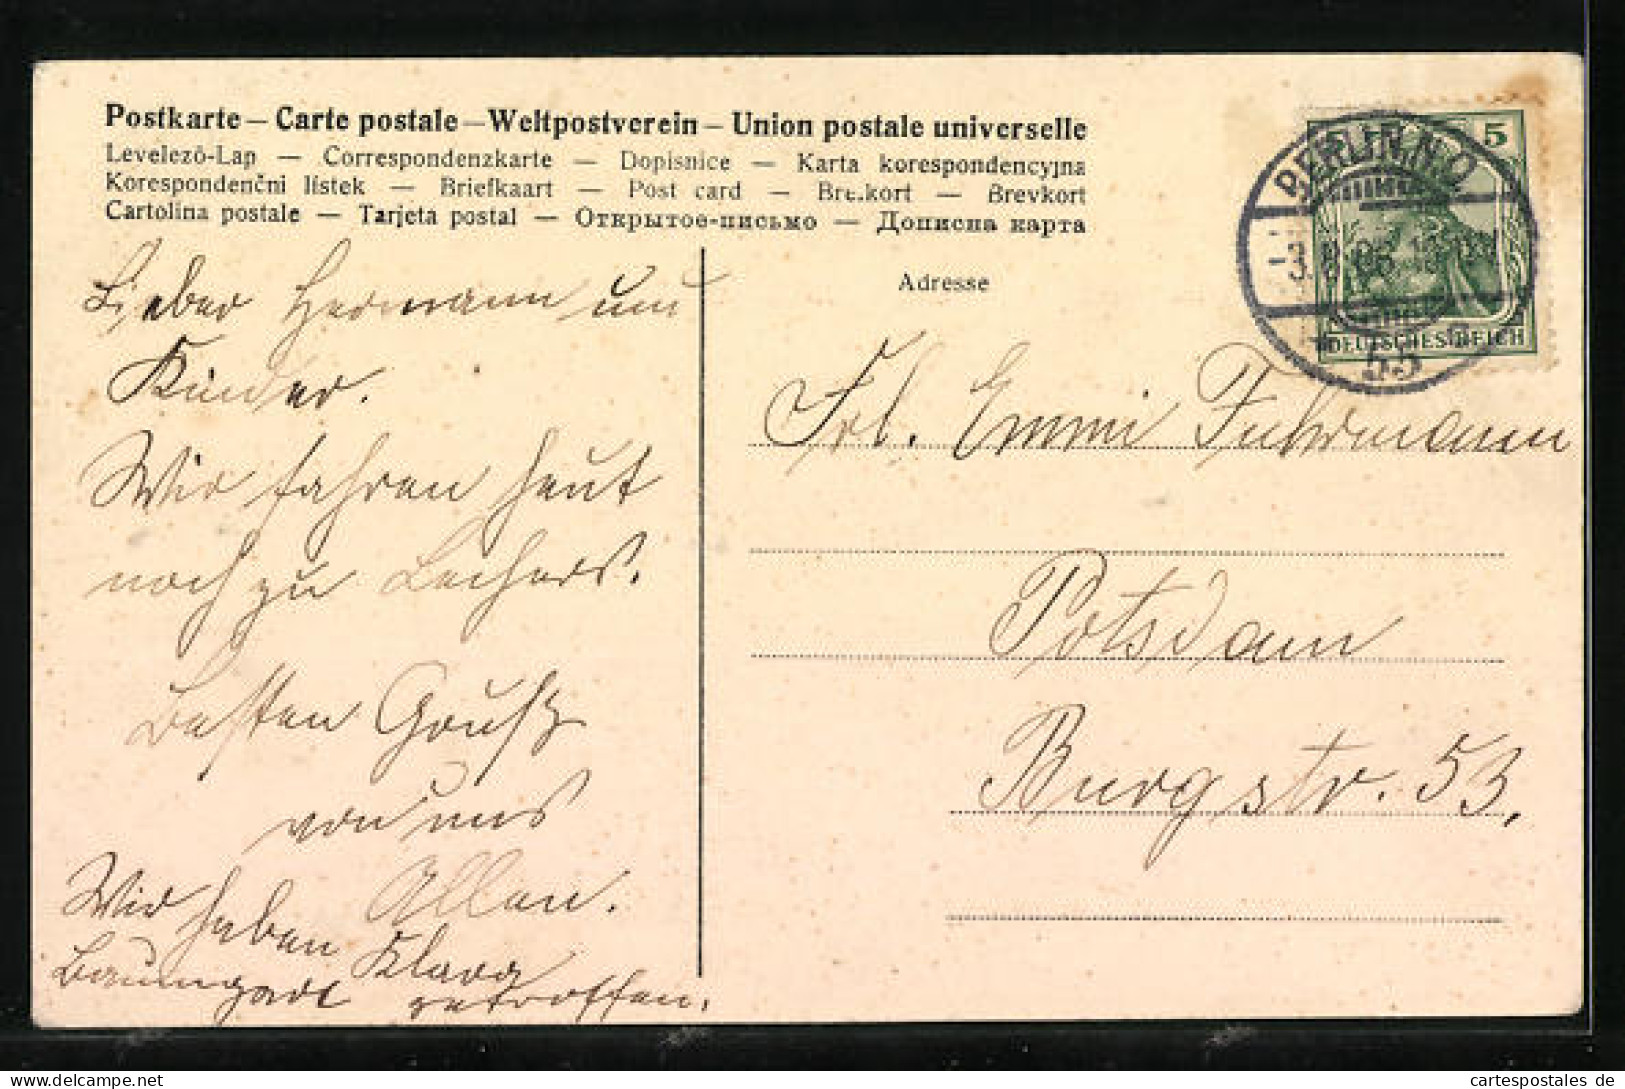 Postkarte — Carte postale — Weltpostverein — Union postale universelle
Levelező-Lap — Correspondenzkarte — Dopisnice — Karta korespondencyjna
Korespondenční lístek — Briefkaart — Post card — Brefkort — Brevkort
Cartolina postale — Tarjeta postal — Открытое-письмо — Дописна карта
Adresse
BERLIN N.O.
3. 8. 06
55
5
DEUTSCHES REICH
Lieber Hermann und
Kinder.
Wir fahren heut
noch zu
Besten Gruß
von uns
Allen.
Wir haben Klara
Baumgart getroffen.
Frl. Emmi Fuhrmann
Potsdam
Burgstr. 53,
cartespostales de